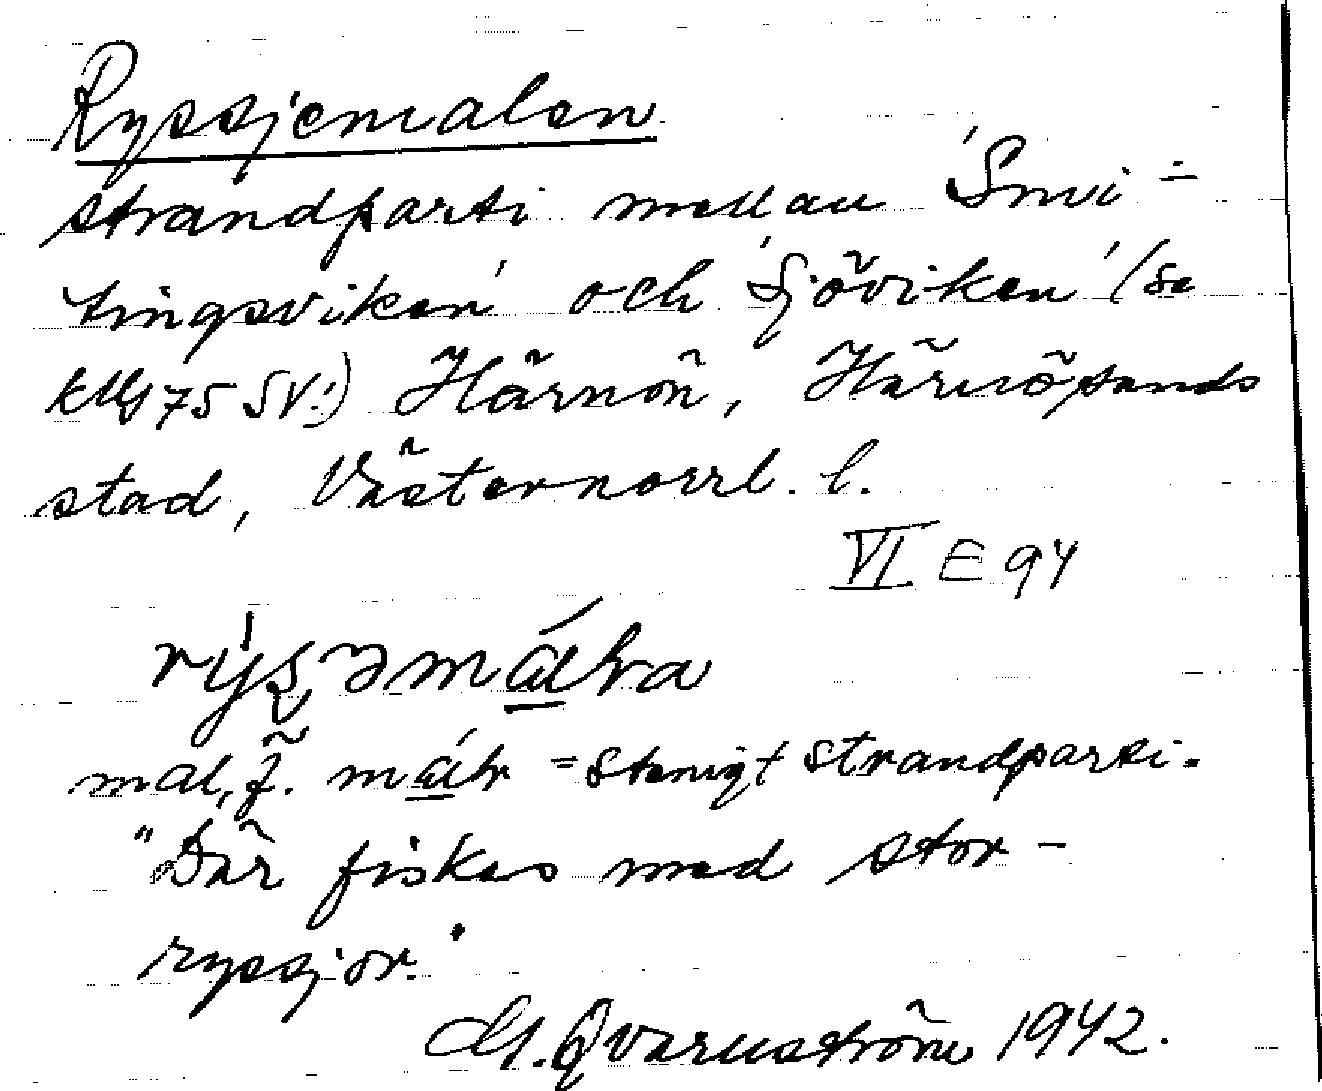 Ryssjemalen
strandparti mellan 'Smi-
tingsviken' och 'Sjöviken' (se
75 SV!) Härnön, Härnösands
stad, Västernorrl. l.
VI E 94
mal, f. = stenigt strandparti.
"Där fiskas med stor-
ryssjor."
M. Qvarnström 1942.